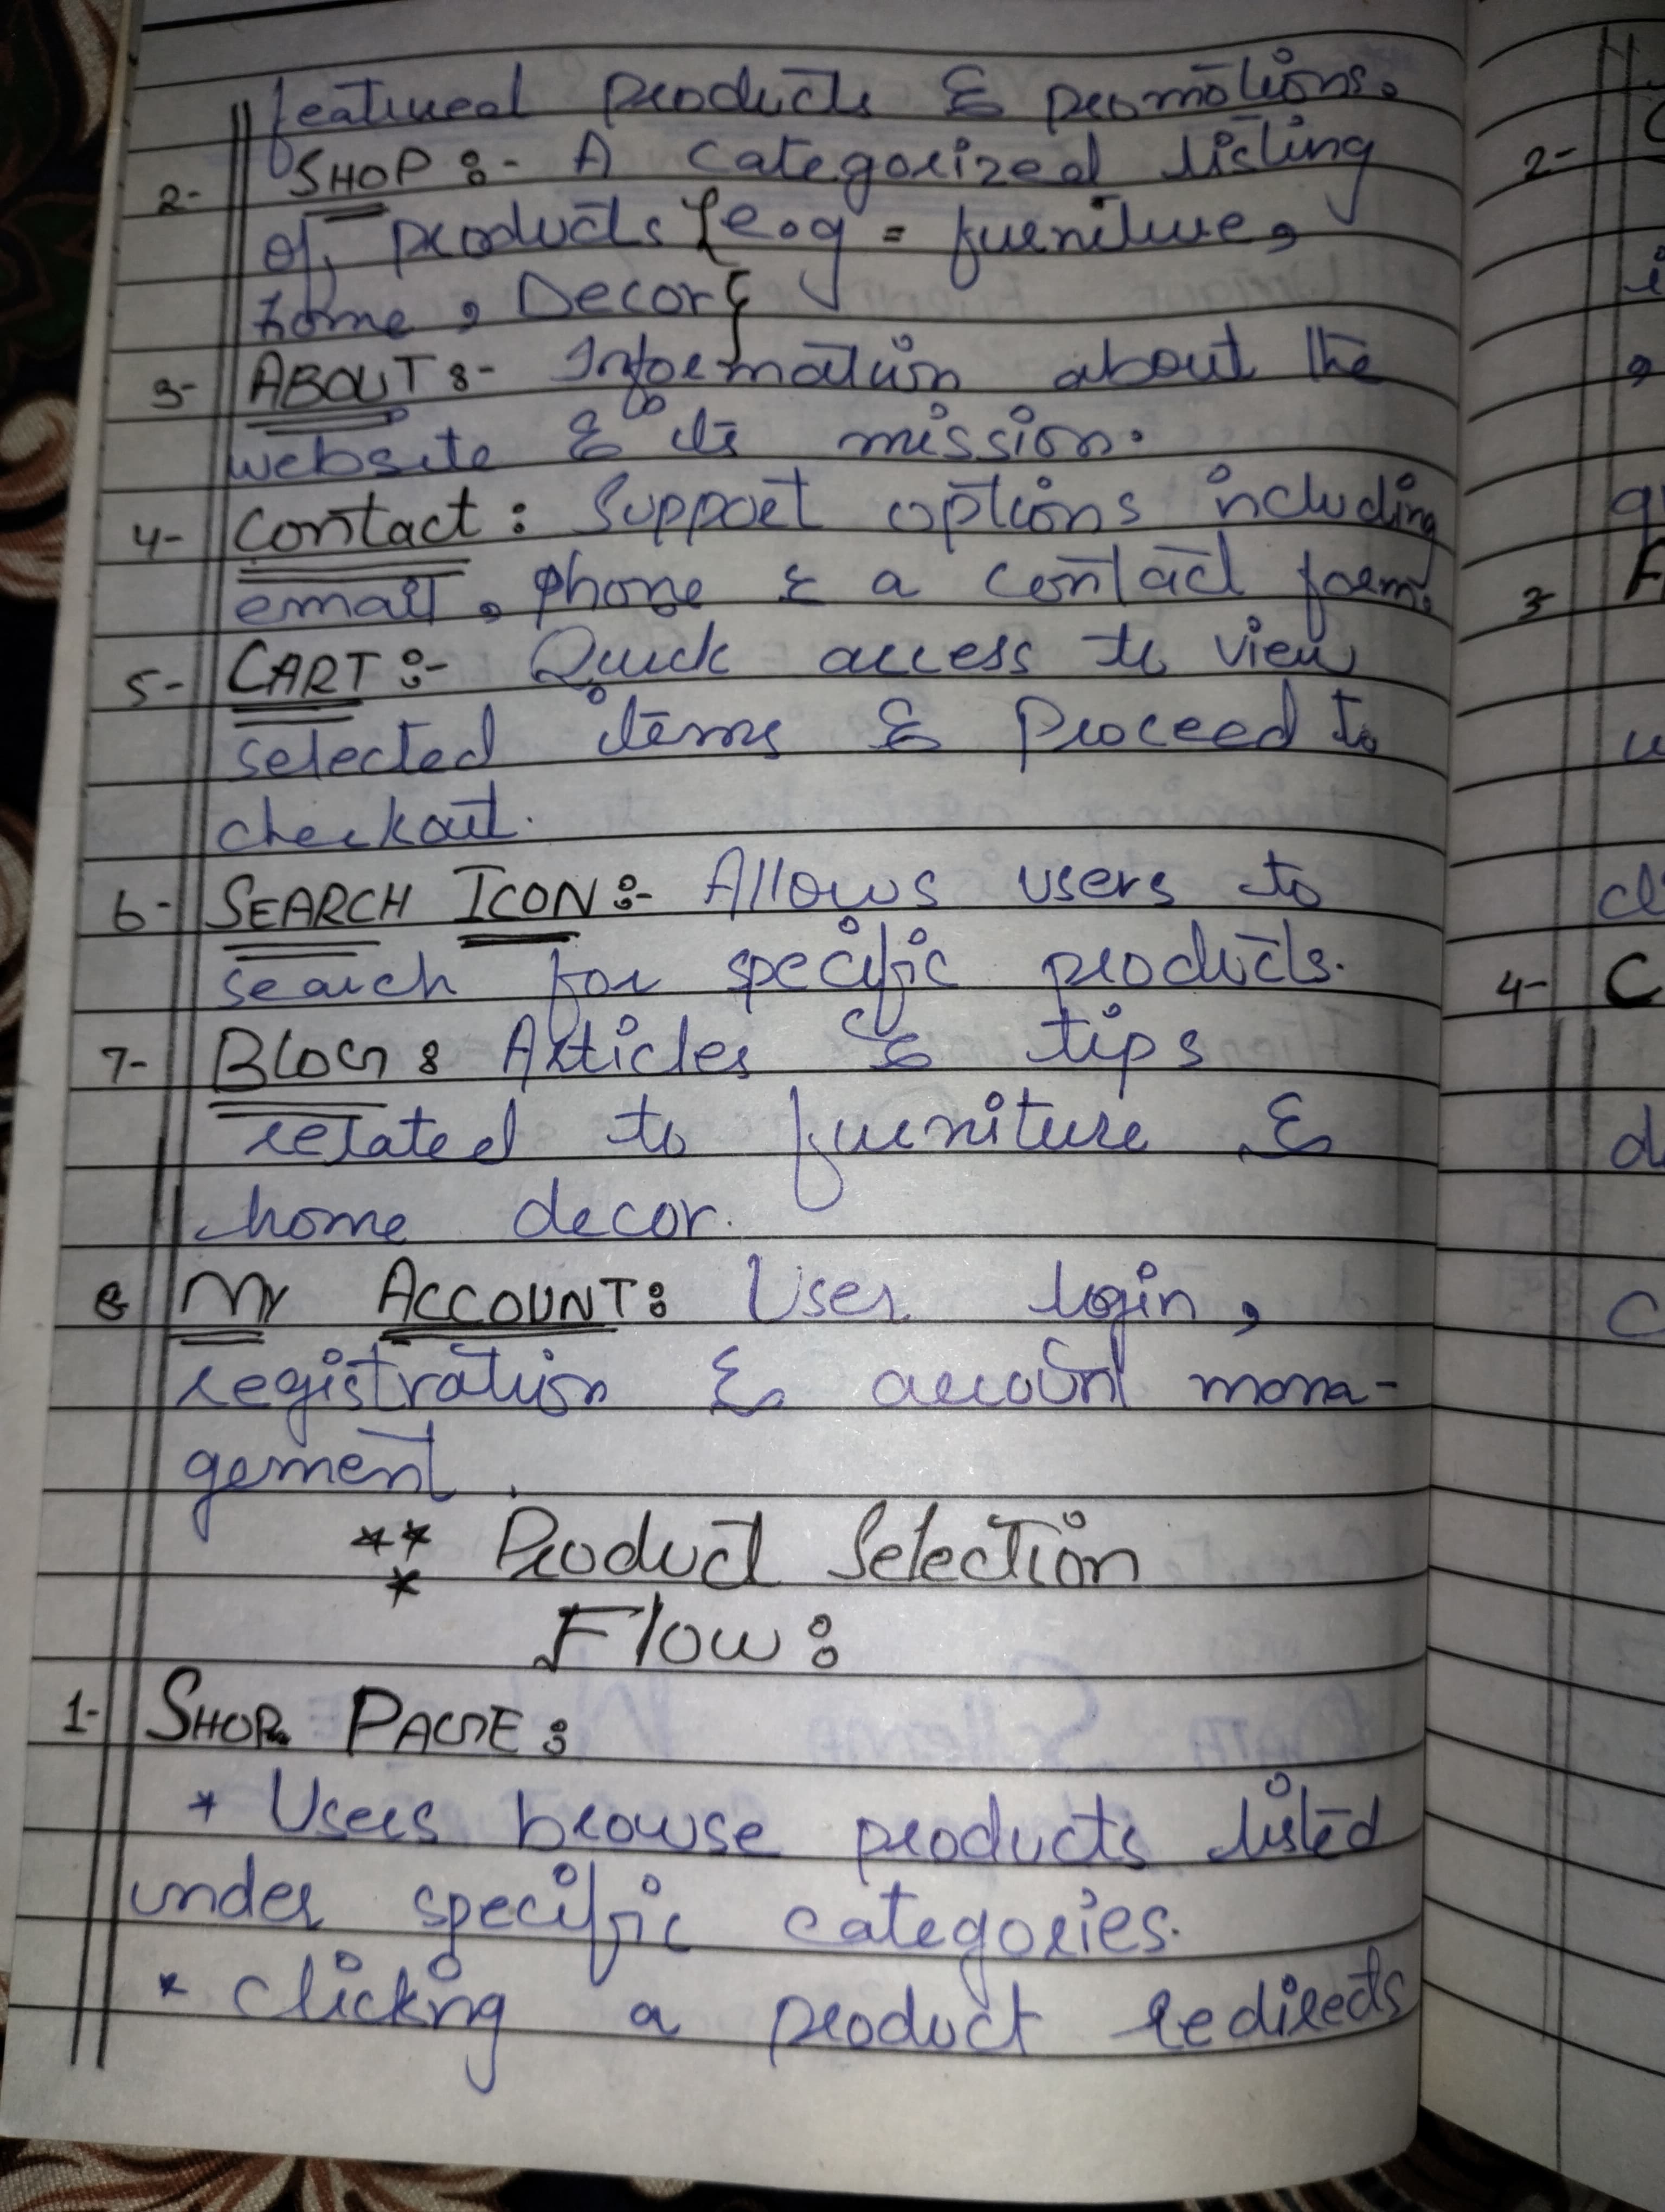 featured products & promotions.
2- SHOP :- A categorized listing
of products {e.g = furniture,
home, Decor}
3- ABOUT :- Information about the
website & its mission.
4- Contact : Support options including
email, phone & a contact form.
5- CART :- Quick access to view
selected items & Proceed to
checkout.
6- SEARCH ICON :- Allows users to
search for specific products.
7- BLOG : Articles & tips
related to furniture &
home decor.
8- MY ACCOUNT : User login,
registration & account mana-
gement.
*** Product Selection
Flow :
1- SHOP PAGE :
* Users browse products listed
under specific categories.
* Clicking a product redirects
2-
3-
4- C